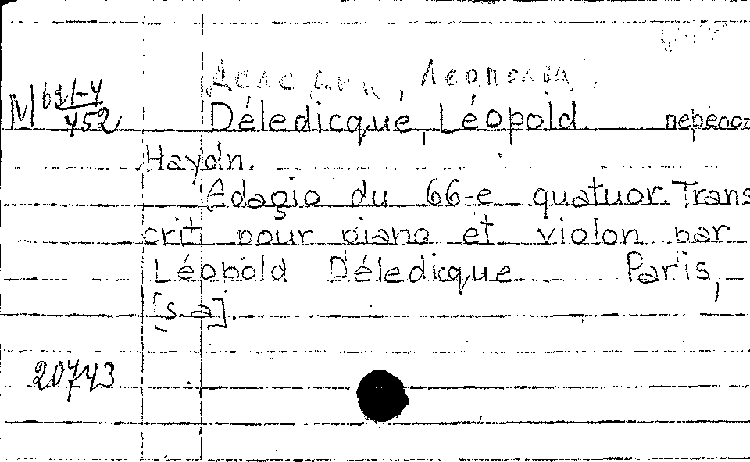 M 621-4
452
Déledicque, Léopold.
Haydn.
Adagio du 66-e quatuor. Trans
crit pour piano et violon par
Léopold Déledicque. Paris,
[s.a].
20743